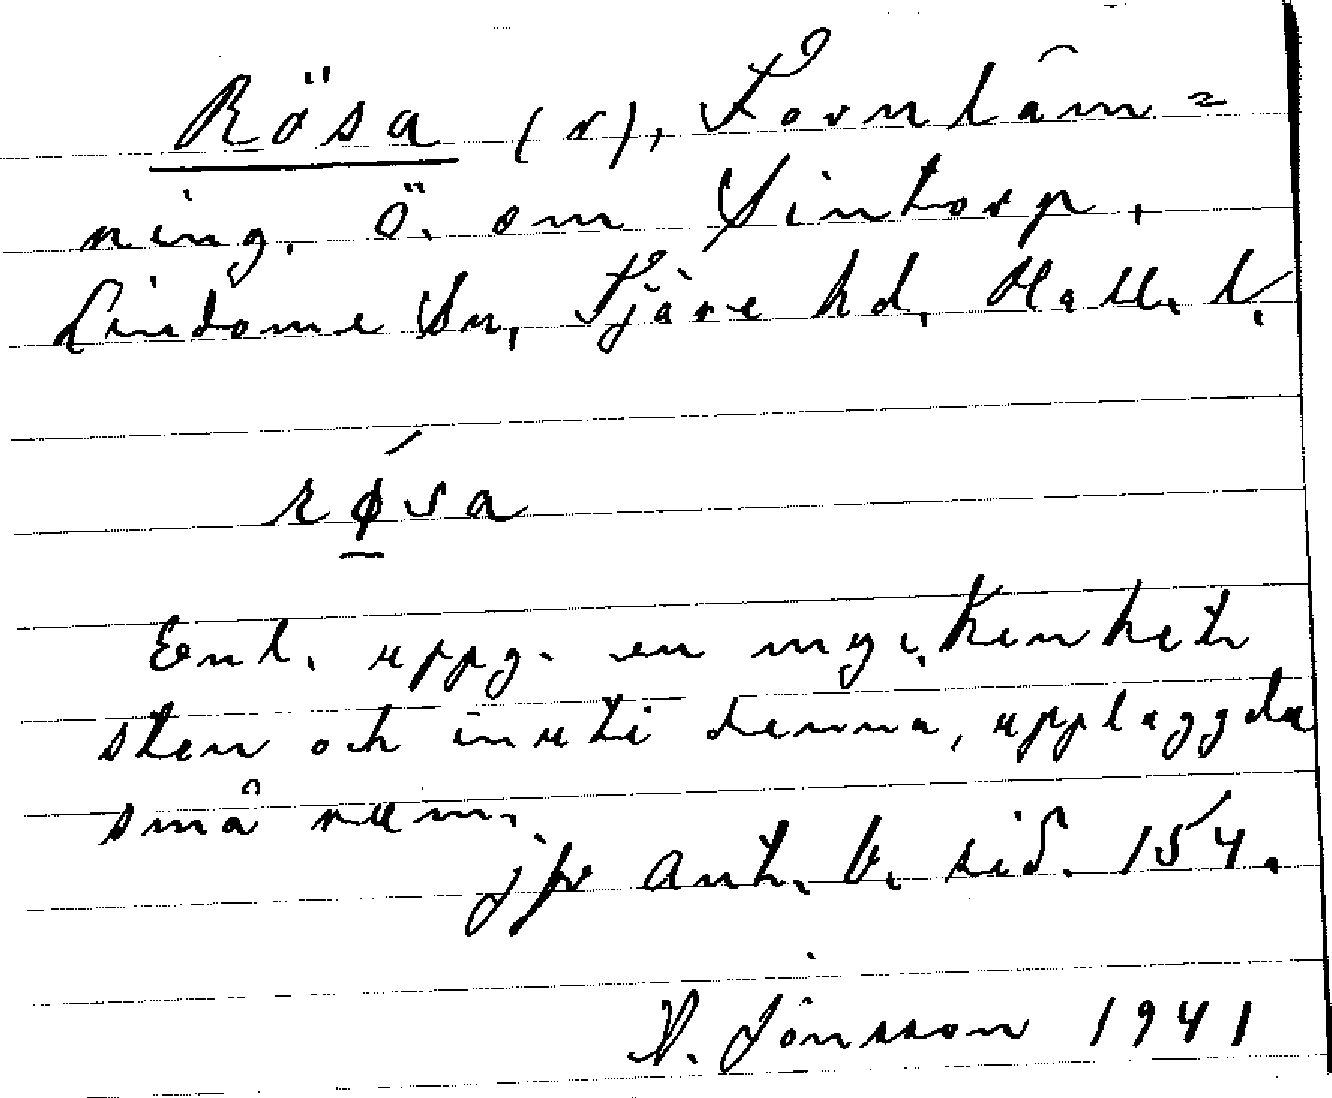 Rösa (r), Fornläm=
ning. Ö. om Sintorp,
Lindome Sn, Fjäre hd, Hall. l.
røsa
Enl. uppg. en myckenhet
sten och inuti denna, upplaggda
små rum.
jfr Ant. b. sid. 154.
V. Jönsson 1941